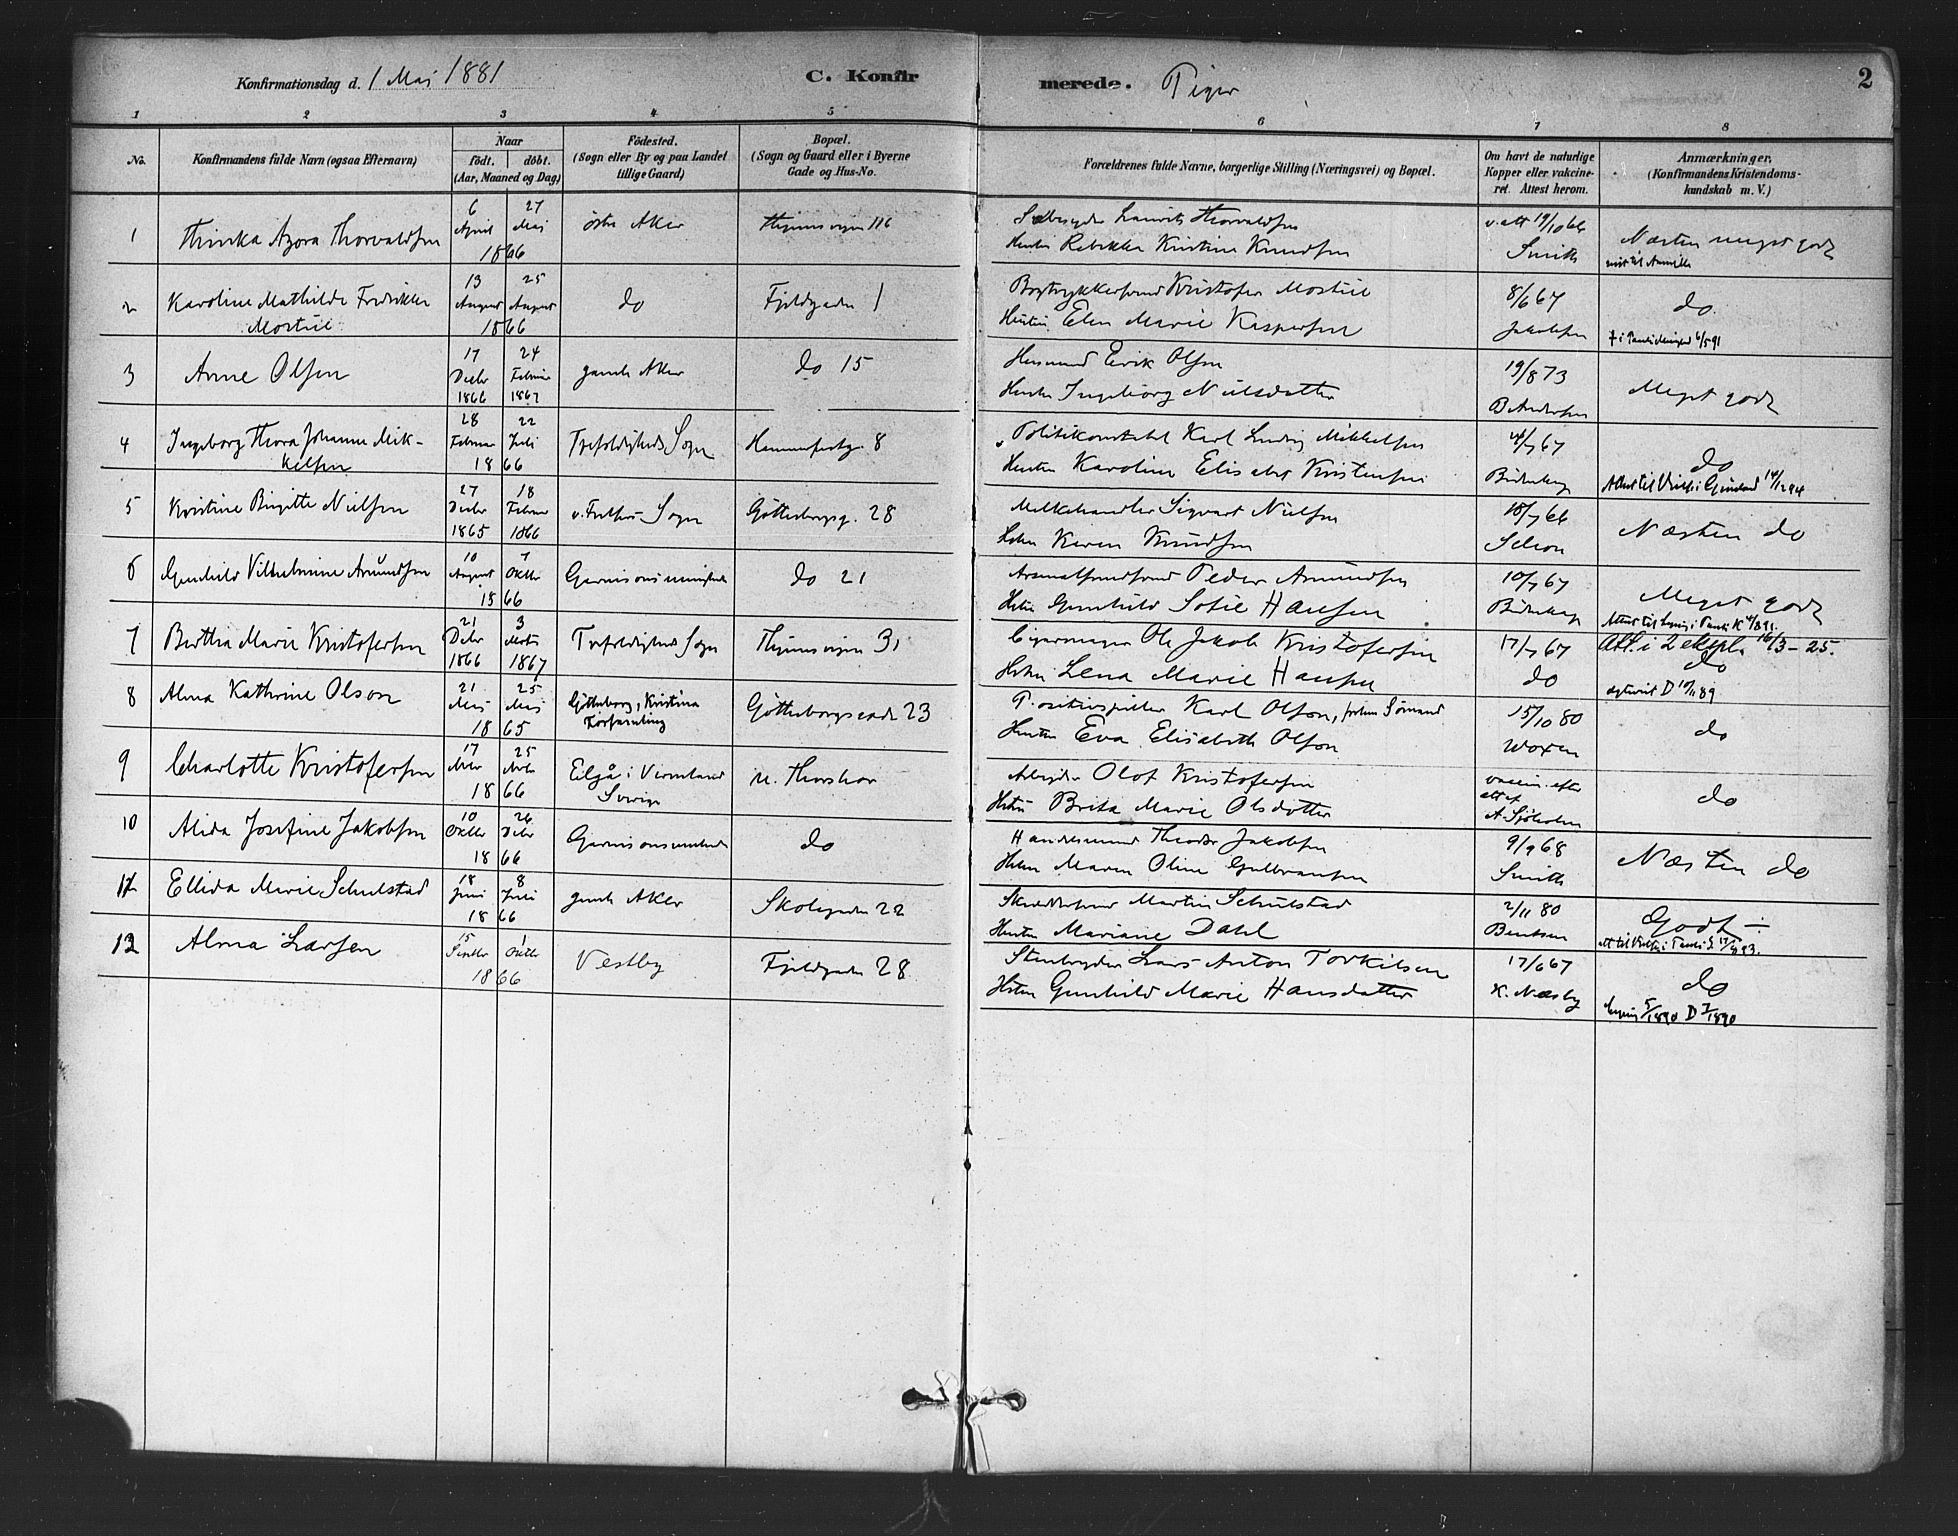 Konfirmationsdag d. 1 Mai 1881 C. Konfir merede. Piger 2
1 2 3 4 5 6 7 8
No. Konfirmandens fulde Navn (ogsaa Efternavn) Naar født. døbt. (Aar, Maaned og Dag) Fødested. (Sogn eller By og paa Landet tillige Gaard) Bopæl. (Sogn og Gaard eller i Byerne Gade og Hus-No. Forældrenes fulde Navne, borgerlige Stilling (Næringsvei) og Bopæl. Om havt de naturlige Kopper eller vakcineret. Attest herom. Anmærkninger, (Konfirmandens Kristendomskundskab m. V.)
1 Thinka Azora Thorvaldsen 6 April 27 Mai 1866 østre Aker 116 Lauritz Thorvaldsen v. att 19/10 66 Næsten meget godt
Hustru Rebekka Kristine Knudsen Smith
2 Karoline Mathilde Fredrikke Mostüe 13 August 25 August 1866 do Fjeldgaden 1 Bogtrykkersvend Kristofer Mostüe 8/6 67 do
Hustru Elen Marie Kaspersen Jakobsen
3 Anne Olsen 17 Decbr 1866 24 Februar 1867 gamle Aker do 15 Husmand Eerik Olsen 19/8 73 Meget godt
Hustru Ingeborg Nielsdatter B. Andersen
4 Ingeborg Thora Johanne Mikkelsen 28 Februar 22 Juli 1866 Trefoldigheds Sogn Hammerfestg. 8 Politikonstabel Karl Ludvig Mikkelsen 4/7 67 do
Hustru Karoline Elisabet Kristensen
5 Kristine Birgitte Nielsen 27 Decbr 1865 18 Februar 1866 v. Frelsers Sogn Gøtteborgsg. 28 Melkehandler Sigvart Nielsen 18/7 66 Næsten do
Hustru Karen Knudsen
6 Gunhild Vilhelmine Amundsen 10 August 7 Oktbr 1866 Garnisonsmenighed do 21 Peder Amundsen 10/7 67 Meget godt
Hustru Gunhild Sofie Hansen
7 Berthia Marie Kristofersen 21 Decbr 1866 3 Marts 1867 Trefoldigheds Sogn 31 Cigarmager Ole Jakob Kristofersen 17/7 67 Att. i 2 ekspl. 16/3-25.
Hustru Lena Marie Hansen do do
8 Alma Kathrine Olson 21 Mai 25 Mai 1865 Gøtteborg, Kristina Församling Gøtteborgsgade 23 Positivspiller Karl Olson, forhen Sømand 15/10 80 do
Hustru Eva Elisabeth Olson Woxen
9 Charlotte Kristofersen 17 25 1866 Eilgå i Vermland Sverige n. Thorshov Arbeider Olof Kristofersen vaccin. efter att af A. Sjøholm do
Hustru Brita Marie Olsdotter
10 Alida Josefine Jakobsen 10 Oktbr 26 Decbr 1866 Garnisonsmenighed do Handelsmand Theodor Jakobsen 9/9 68 Næsten do
Hustru Maren Oline Gulbransen Smith
11 Ellida Marie Schulstad 18 Juni 8 Juli 1866 gamle Aker Skolegaden 22 Martin Schulstad 2/11 80 Godt ÷
Hustru Mariane Dahl Bentsen
12 Alma Larsen 15 Septbr 1 Oktbr 1866 Vestby Fjeldgaden 28 Stenbryder Lars Anton Torkilsen 17/6 67 do
Hustru Gunhild Marie Hansdatter K. Næsby